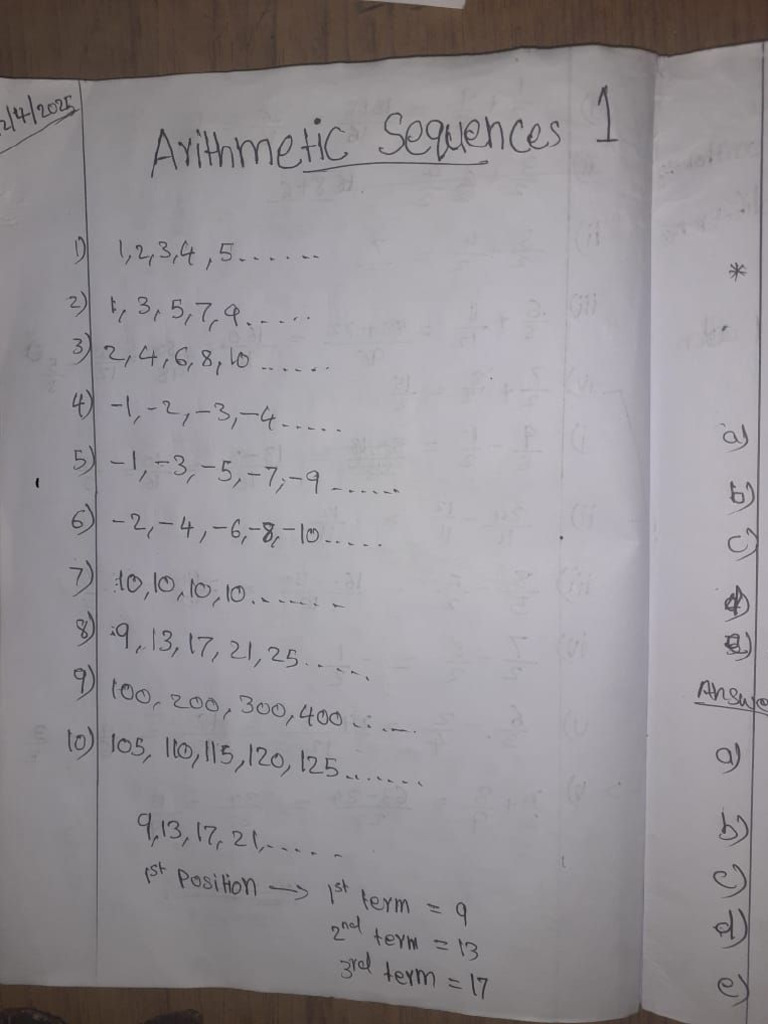 2/4/2025
Arithmetic Sequences 1
1) 1,2,3,4,5.......
2) 1, 3, 5, 7, 9......
3) 2, 4, 6, 8, 10......
4) -1, -2, -3, -4.....
5) -1, -3, -5, -7, -9......
6) -2, -4, -6, -8, -10.....
7) 10, 10, 10, 10.......
8) 9, 13, 17, 21, 25.....
9) 100, 200, 300, 400.....
10) 105, 110, 115, 120, 125.......
9, 13, 17, 21,.....
1st position → 1st term = 9
2nd term = 13
3rd term = 17
*
a)
b)
c)
Answe
a)
b)
c)
d)
e)